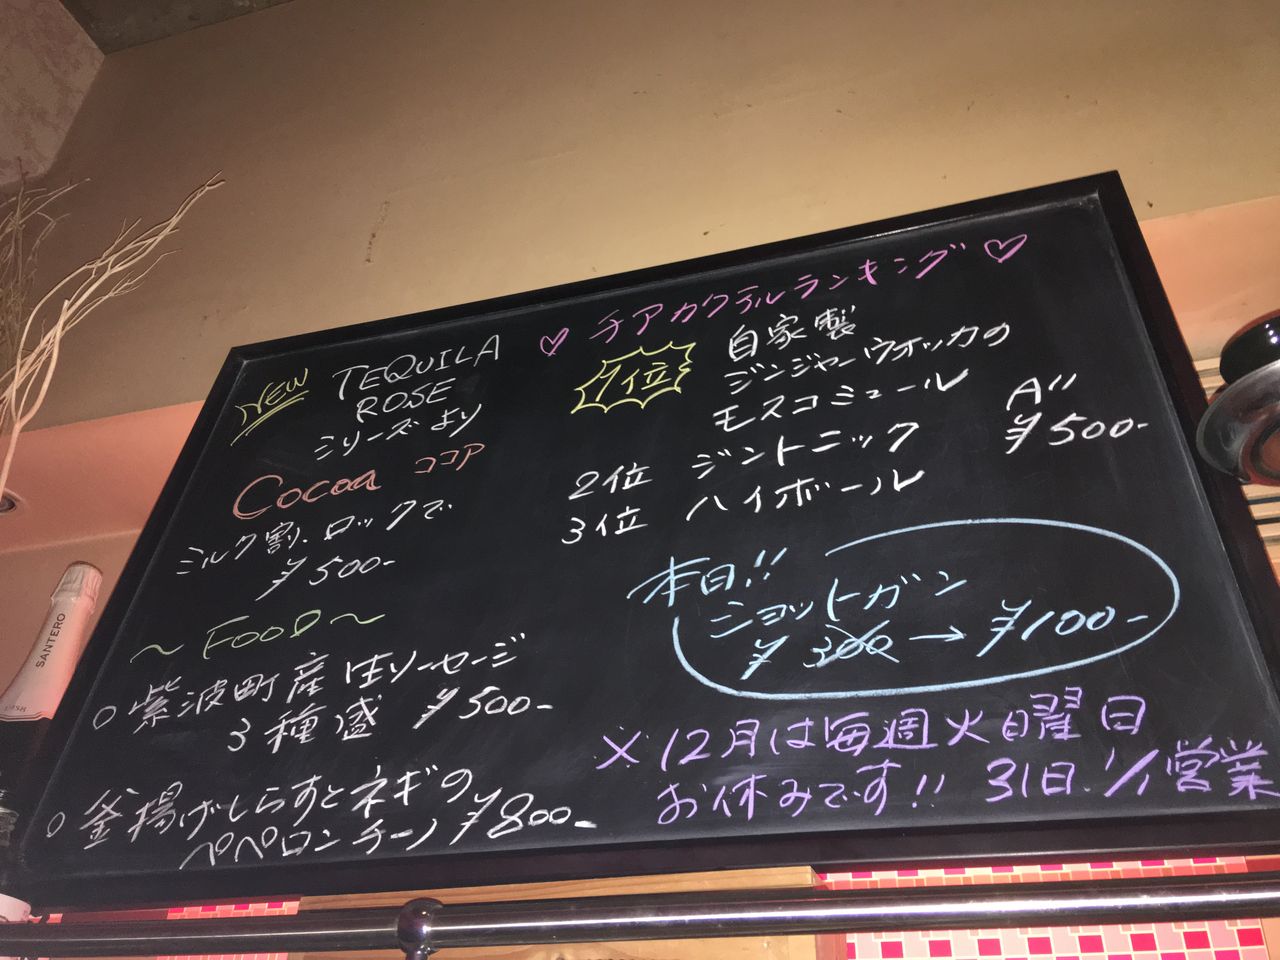 NEW
TEQUILA
ROSE
シリーズより
Cocoa ココア
ミルク割.ロックで
¥500-
〜FOOD〜
○紫波町産生ソーセージ
3種盛 ¥500-
○釜揚げしらすとネギの
ペペロンチーノ ¥800-
♡チアカクテルランキング♡
1位
自家製
ジンジャーウオッカの
モスコミュール
2位 ジントニック
3位 ハイボール
All
¥500-
本日!!
ショットガン
¥300→¥100-
※12月は毎週火曜日
お休みです!! 31日.1/1営業
SANTERO